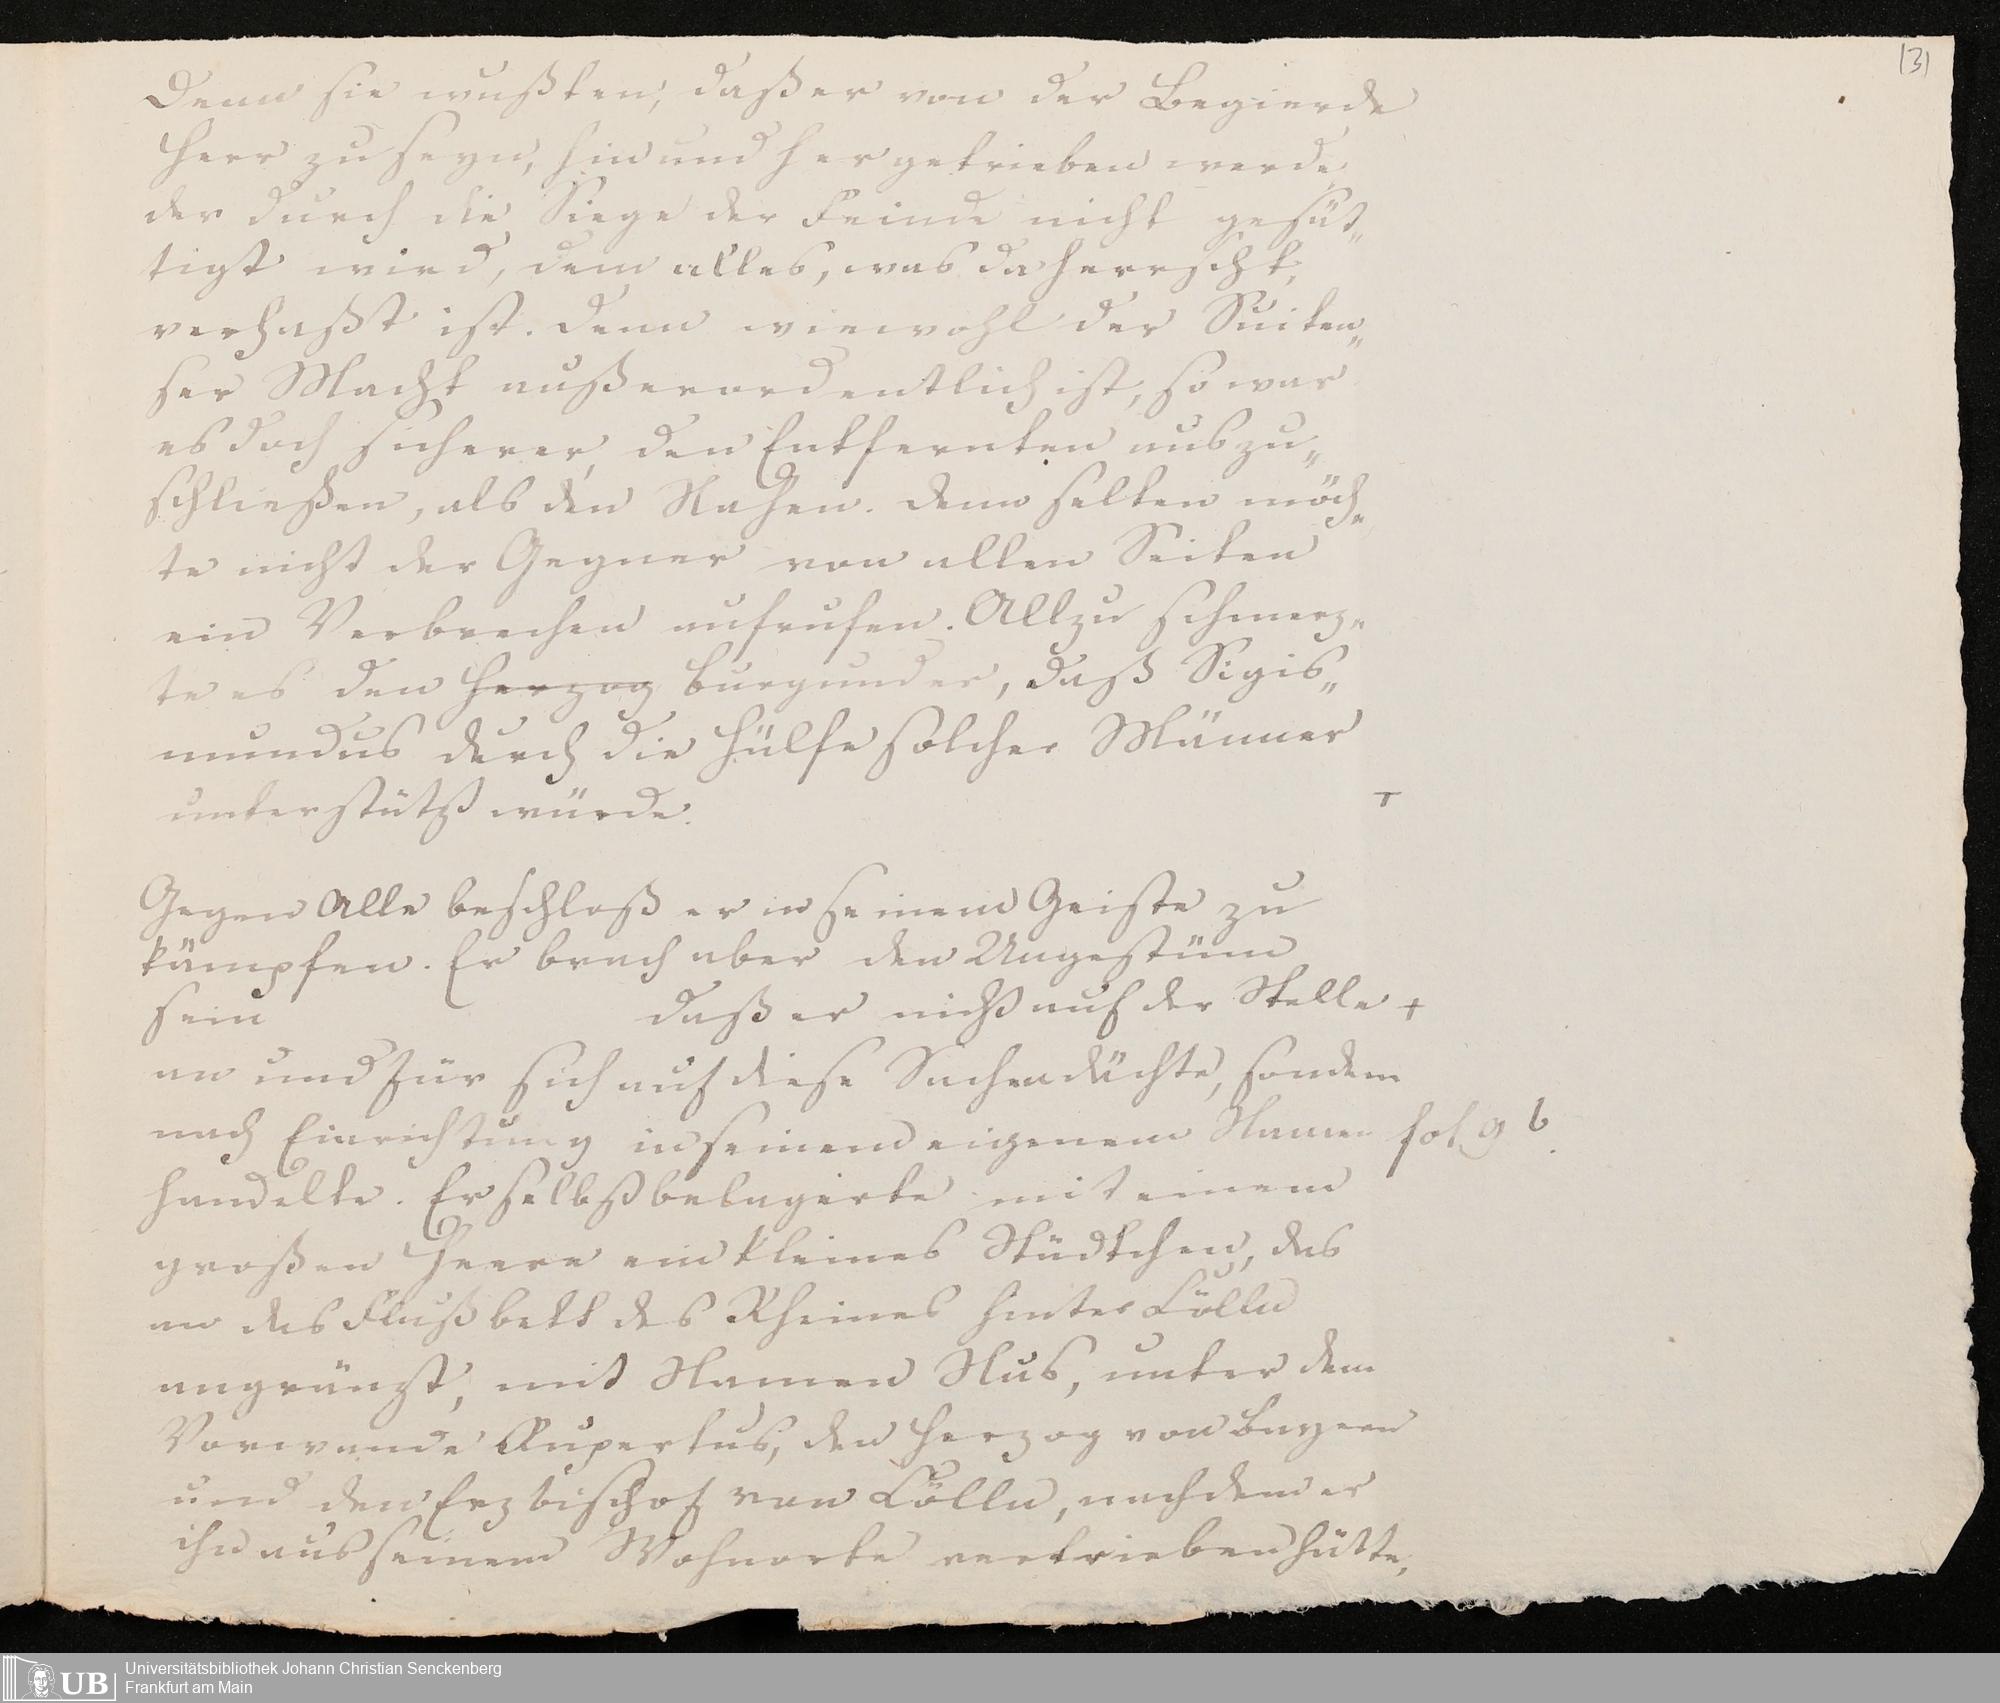 13)
Denn sie wußten, daß er von der Begierde
Herr zu seyn, hin und her getrieben werde,
der durch die Siege der Feinde nicht gesät„
tigt wird, dem alles, was da herrscht,
verhaßt ist. Denn wiewohl der Suiten„
ser Macht außerordentlich ist, so war
es doch sicherer, den Entfernten auszu„
schließen, als den Nahen. denn selten möch„
te nicht der Gegner von allen Seiten
ein Verbrechen aufrufen. Allzu schmerz„
te es den Herzog burgunder, daß Sigis„
mundus durch die Hülfe solcher Männer
unterstützt würde.
+
Gegen Alle beschloß er in seinem Geiste zu
kämpfen. Er brach aber den Ungestüm
sein daß er nicht auf der Stelle +
an und für sich auf diese Sachen dächte, sondern
nach Einrichtung in seinem eigenem Namen fol. 9 b.
handelte. Er selbst belagerte mit einem
großen Heere ein kleines Städtchen, das
an das Flußbett des Rheines hinter Cölln
angränzt, mit Namen Nus, unter dem
Vorwande Rupertus, den Herzog von Bayern
und den Erzbischof von Cölln, nachdem er
ihn aus seinem Wohnorte vertrieben hätte,
Universitätsbibliothek Johann Christian Senckenberg
Frankfurt am Main
UB